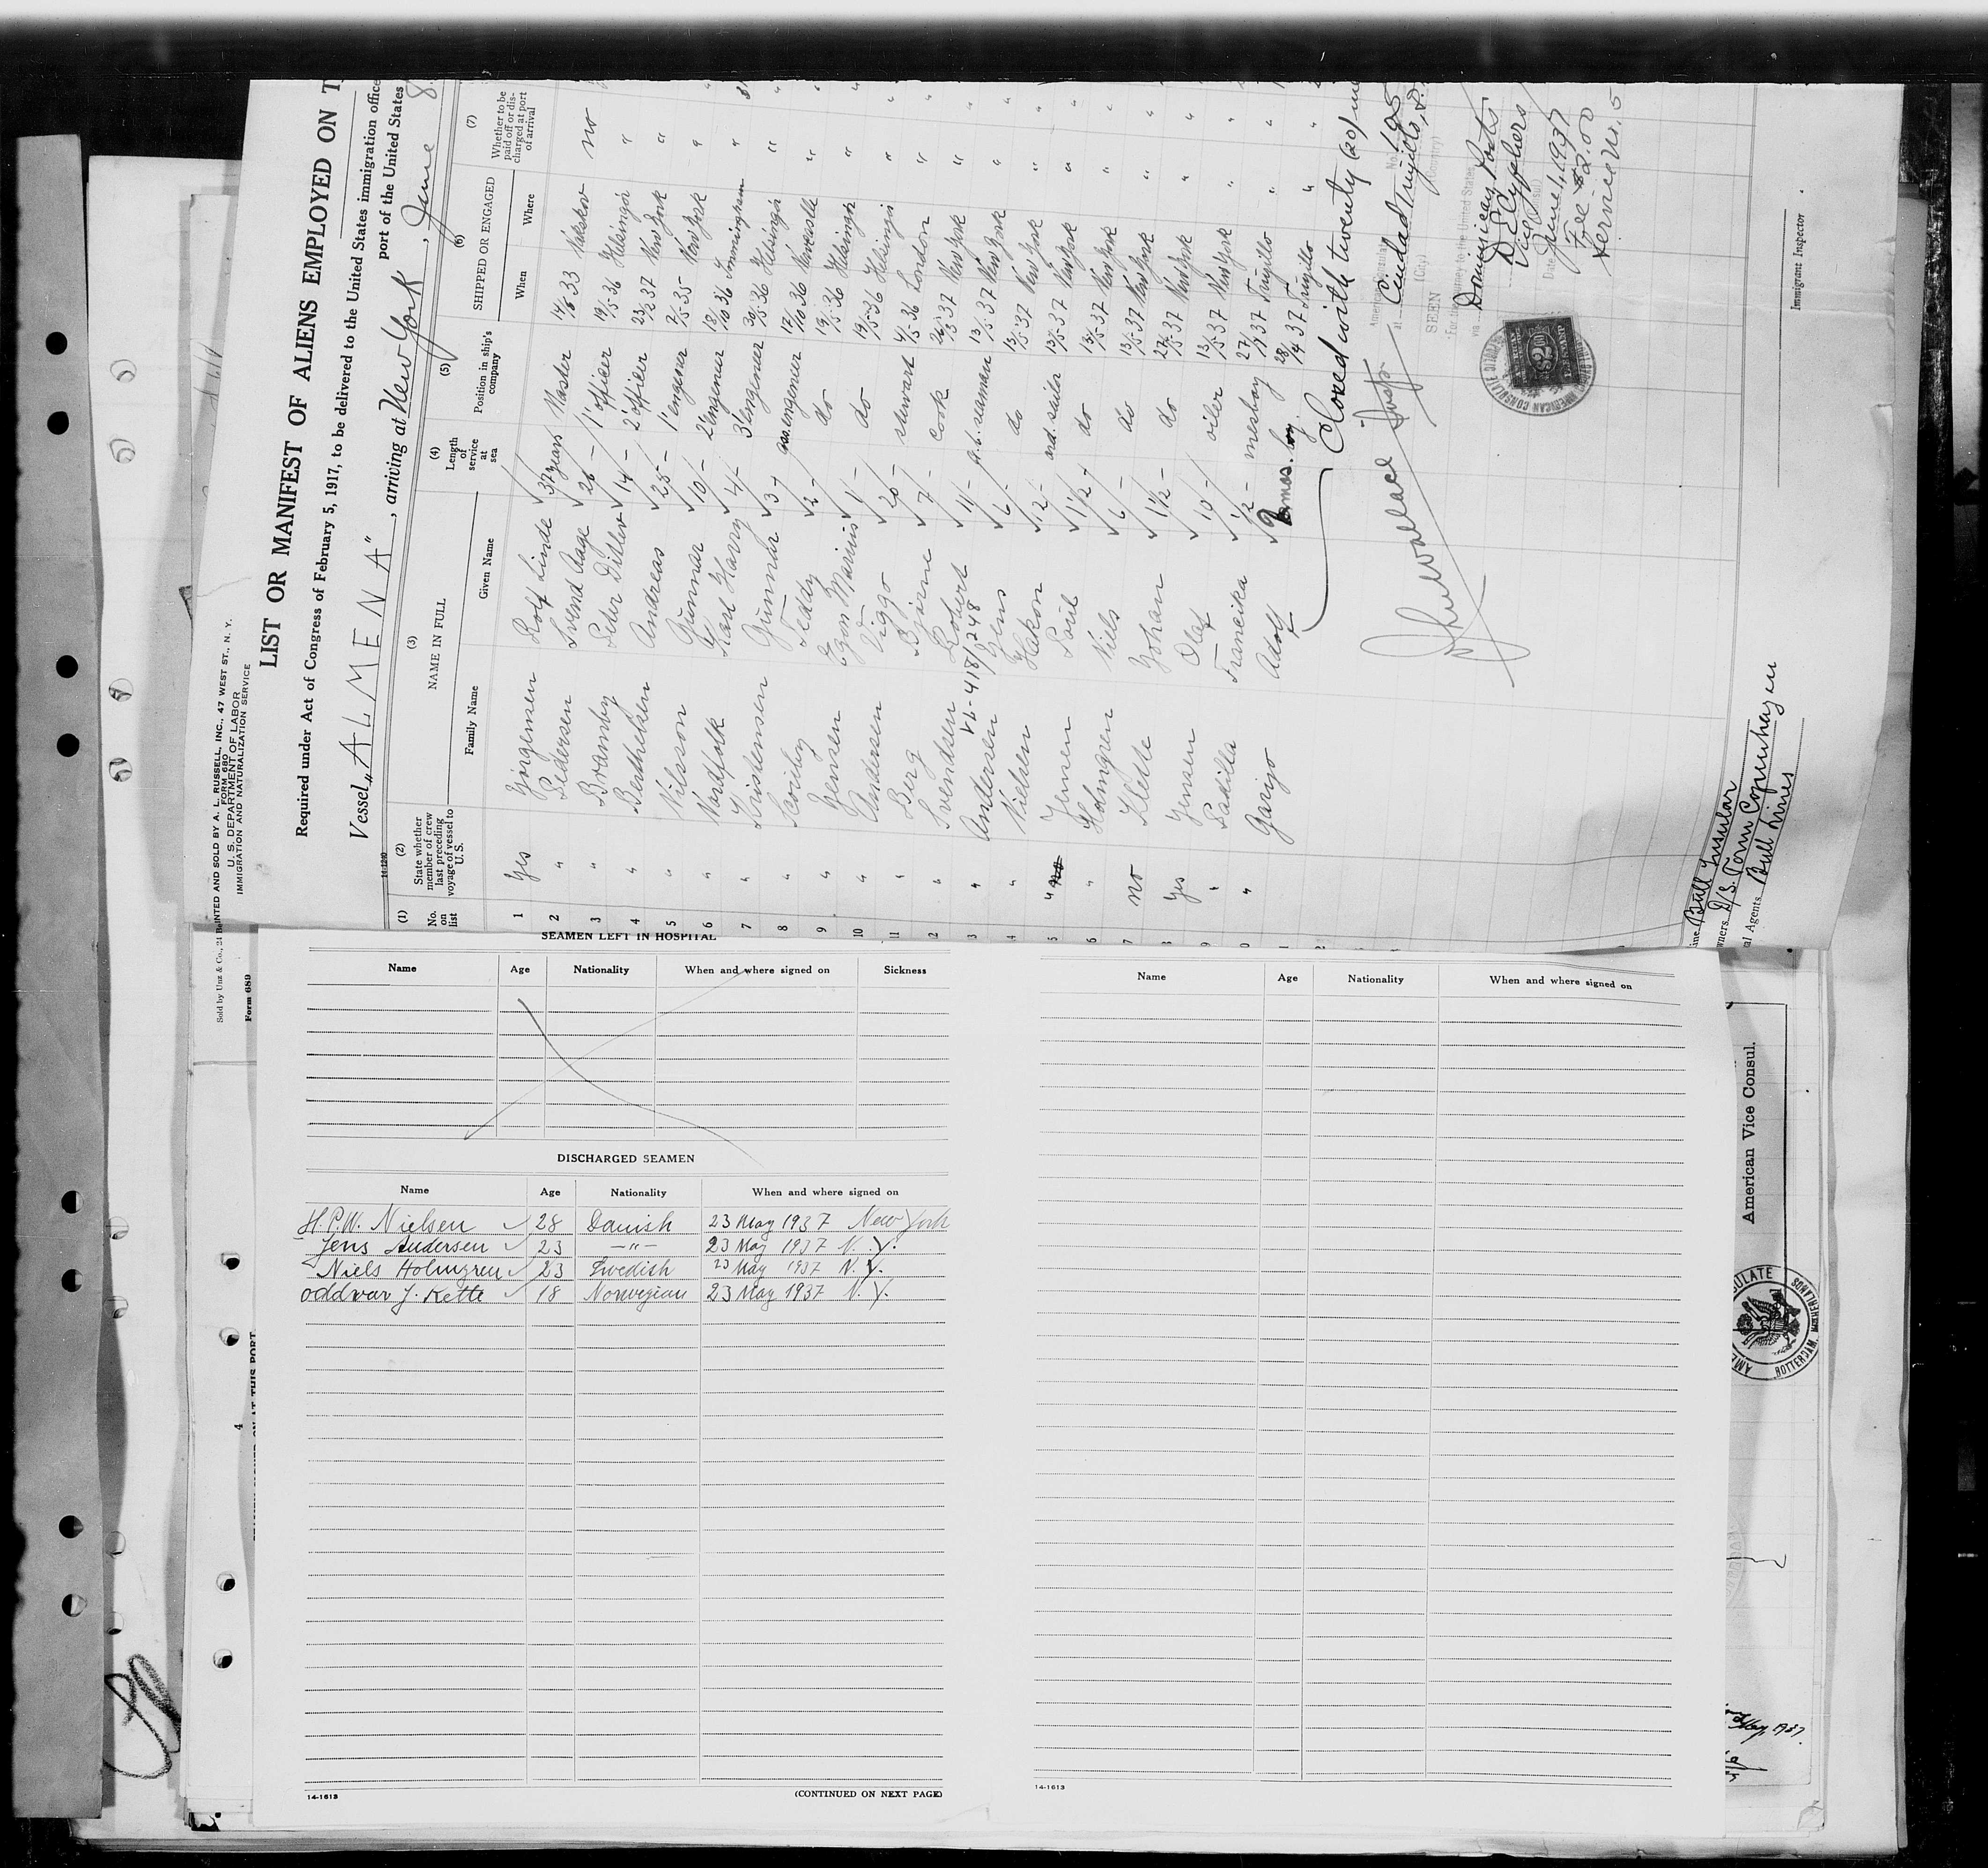 PRINTED AND SOLD BY A. L. RUSSELL, INC., 47 WEST ST., N. Y.
FORM 680
U. S. DEPARTMENT OF LABOR
IMMIGRATION AND NATURALIZATION SERVICE
LIST OR MANIFEST OF ALIENS EMPLOYED ON T
Required under Act of Congress of February 5, 1917, to be delivered to the United States immigration office
port of the United States
Vessel "ALMENA", arriving at New York, June 8
14-1240
(1) (2) (3) (4) (5) (6) (7)
No. on list
State whether member of crew last preceding voyage of vessel to U. S.
NAME IN FULL
Family Name Given Name
Length of service at sea
Position in ship's company
SHIPPED OR ENGAGED
When Where
Whether to be paid off or discharged at port of arrival
1 Yes Jörgensen Rolf Linde 37 years Master 14/8 33 Nakskov no
2 " Pedersen Svend Aage 26 - 1' officer 19/5 36 Helsingör "
3 " Bramby Peder Ditlev 14 - 2' officer 23/2 37 New York "
4 " Berthelsen Andreas 25 - 1' engeneer 2/5 35 New York "
5 " Nilsson Gunnar 10 - 2' engeneer 18/10 36 Immingham "
6 " Nordfolk Karl Harry 4 - 3' engeneer 30/5 36 Helsingör "
7 " Kristensen Gunnar 3 - ass. engeneer 17/10 36 "
8 " Teddy 2 - do 19/5 36 Helsingör "
9 " Jensen Egon Marius 1 - do 19/5 36 Helsingör "
10 " Andersen Viggo 20 - stewart 4/5 36 London "
11 " Berg Bjarne 7 - cook 37 New York "
2 " Svendsen Robert 11 - a.b. seamen 13/5 37 New York "
VL-418/248
3 " Andersen Jens 6 - do 13/5 37 New York "
4 " Nielsen Hakon 2 - ord. sailor 13/5 37 New York "
5 " no Jensen Poul 1 1/2 - do 13/5 37 New York "
6 " Holmgren Niels 6 - do 13/5 37 New York "
7 no Klette Johan 1 1/2 - do 37 New York "
8 Yes Jensen Olaf 19 - oiler 13/5 37 New York "
9 " Padilla Franciska 1/2 - mesboy 27/4 37 Trujillo "
0 " Garijo Adolf mos. boy 28/4 37 Trujillo "
Closed with twenty (20) na
American Consulate
No. 195
at Ciudad Trujillo, D.
(City) (Country)
SEEN
For the journey to the United States
via Dominican Ports
Vice
Date June 1, 1937
Fee $2.00
Service No. 5
AMERICAN CONSULATE
$2.00
Line Bull Insular
Owners D/S. Torm Copenhagen
al Agents Bull Lines
Immigrant Inspector
Form 689
SEAMEN LEFT IN HOSPITAL
Name Age Nationality When and where signed on Sickness
DISCHARGED SEAMEN
Name Age Nationality When and where signed on
H. P. W. Nielsen 28 Danish 23 May 1937 New York
Jens Andersen 23 —"— 23 May 1937 N. Y.
Niels Holmgren 23 Swedish 23 May 1937 N. Y.
Oddvar J. Kette 18 Norwegian 23 May 1937 N. Y.
14-1613
(CONTINUED ON NEXT PAGE)
Name Age Nationality When and where signed on
14-1613
4
American Vice Consul.
ROTTERDAM, NETHERLANDS
May 1937.